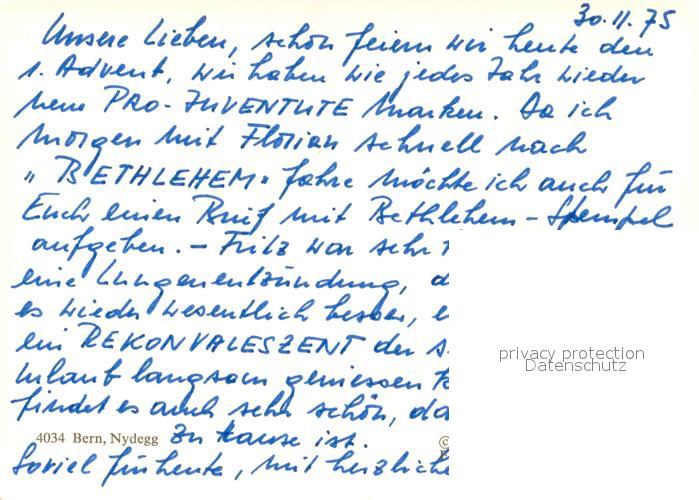 30.11.75
Unsere Lieben, schön feiern wir heute den
1. Advent, wir haben wie jedes Jahr wieder
neue PRO-JUVENTUTE Marken. Da ich
morgen mit Florian schnell nach
"BETHLEHEM" fahre möchte ich auch für
Euch einen Brief mit Bethlehem-Stempel
aufgeben. - Fritz war sehr
eine Lungenentzündung, d
es wieder wesentlich besser, e
ein REKONVALESZENT der s
Urlaub langsam geniessen k
findet es auch sehr schön, da
4034 Bern, Nydegg zu Hause ist.
Soviel für heute, mit herzliche
privacy protection
Datenschutz